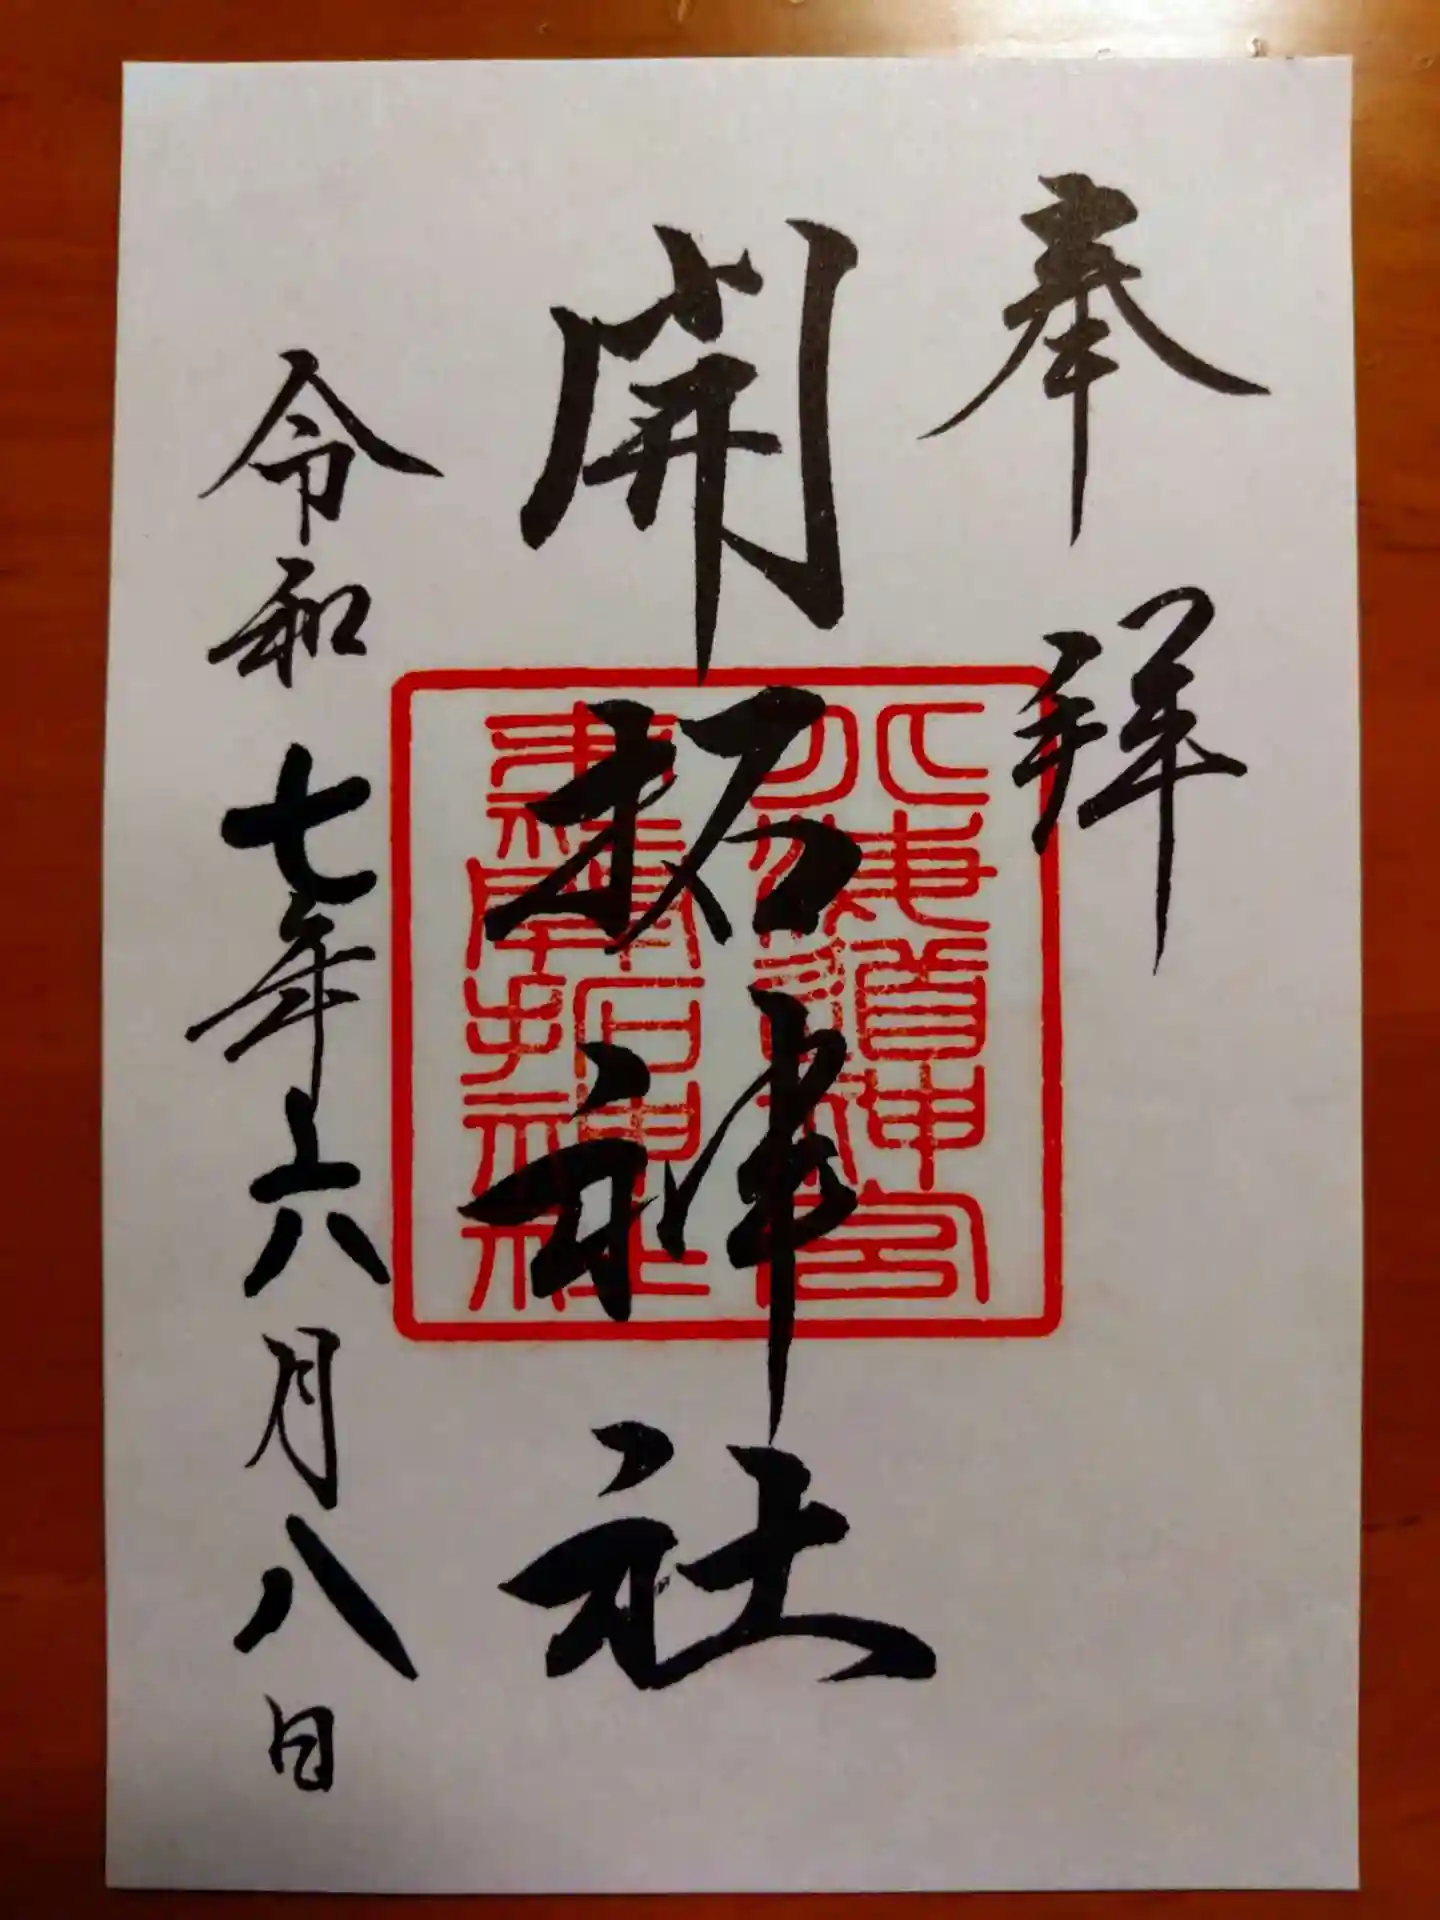 奉拝
開拓神社
北海道神宮
末社開拓神社
令和七年六月八日